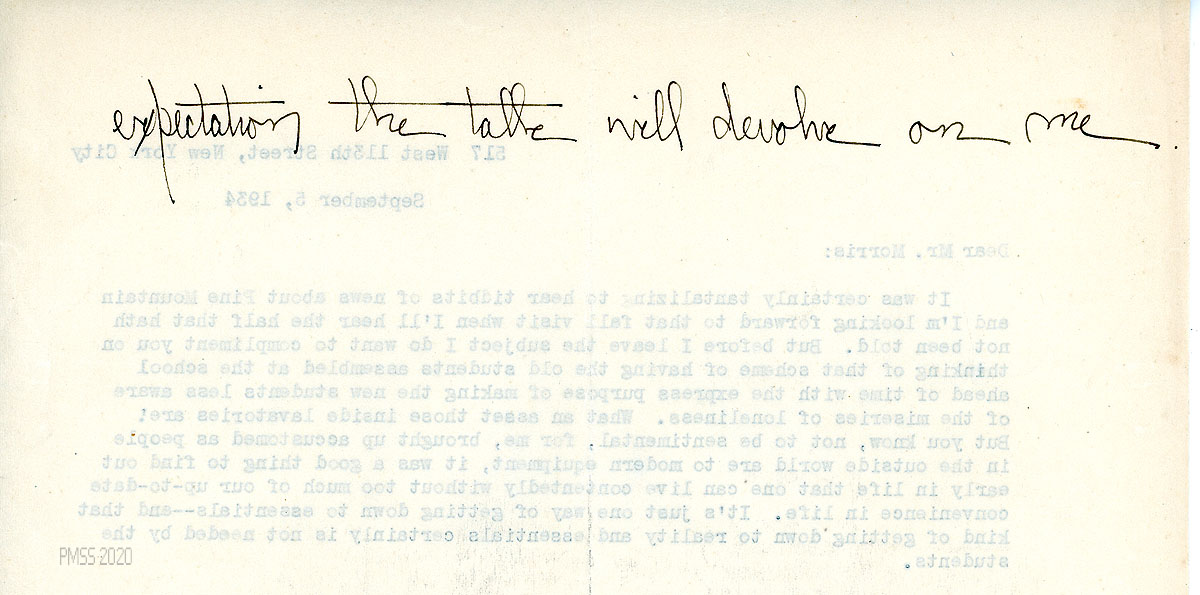 expectation the talk will devolve on me.
517 West 113th Street, New York City
September 5, 1934
Dear Mr. Morris:
It was certainly tantalizing to hear tidbits of news about Pine Mountain
and I'm looking forward to that fall visit when I'll hear the half that hath
not been told. But before I leave the subject I do want to compliment you on
thinking of that scheme of having the old students assembled at the school
ahead of time with the express purpose of making the new students less aware
of the miseries of loneliness. What an asset those inside lavatories are!
But you know, not to be sentimental, for me, brought up accustomed as people
in the outside world are to modern equipment, it was a good thing to find out
early in life that one can live contentedly without too much of our up-to-date
convenience in life. It's just one way of getting down to essentials--and that
kind of getting down to reality and essentials certainly is not needed by the
students.
PMSS-2020